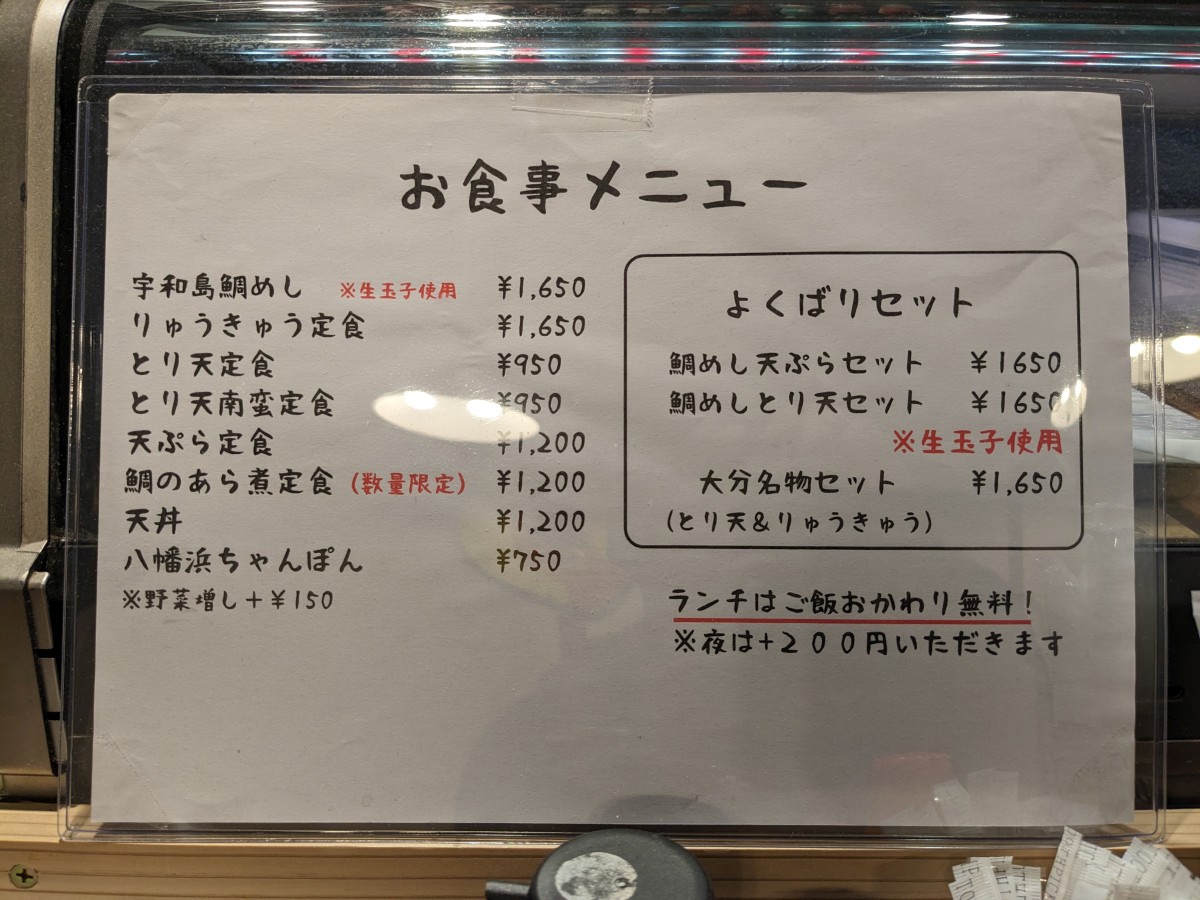 お食事メニュー
宇和島鯛めし ※生玉子使用 ¥1,650
りゅうきゅう定食 ¥1,650
とり天定食 ¥950
とり天南蛮定食 ¥950
天ぷら定食 ¥1,200
鯛のあら煮定食 (数量限定) ¥1,200
天丼 ¥1,200
八幡浜ちゃんぽん ¥750
※野菜増し+¥150
よくばりセット
鯛めし天ぷらセット ¥1650
鯛めしとり天セット ¥1650
※生玉子使用
大分名物セット ¥1,650
(とり天&りゅうきゅう)
ランチはご飯おかわり無料!
※夜は+200円いただきます